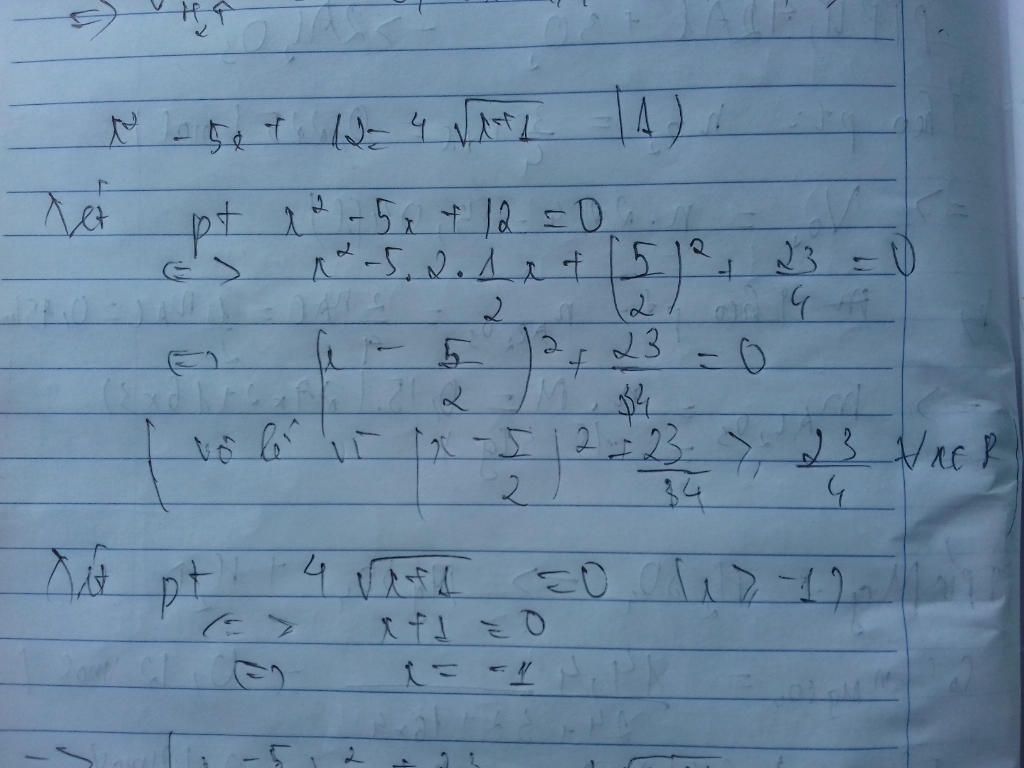 x² - 5x + 12 = 4 √(x+1) (1)
Xét pt x² - 5x + 12 = 0
<=> x² - 5.2.1/2 x + (5/2)² + 23/4 = 0
<=> (x - 5/2)² + 23/4 = 0
( vô lí vì (x - 5/2)² + 23/4 ≥ 23/4 ∀x∈R
Xét pt 4 √(x+1) = 0 (x ≥ -1)
<=> x+1 = 0
<=> x = -1